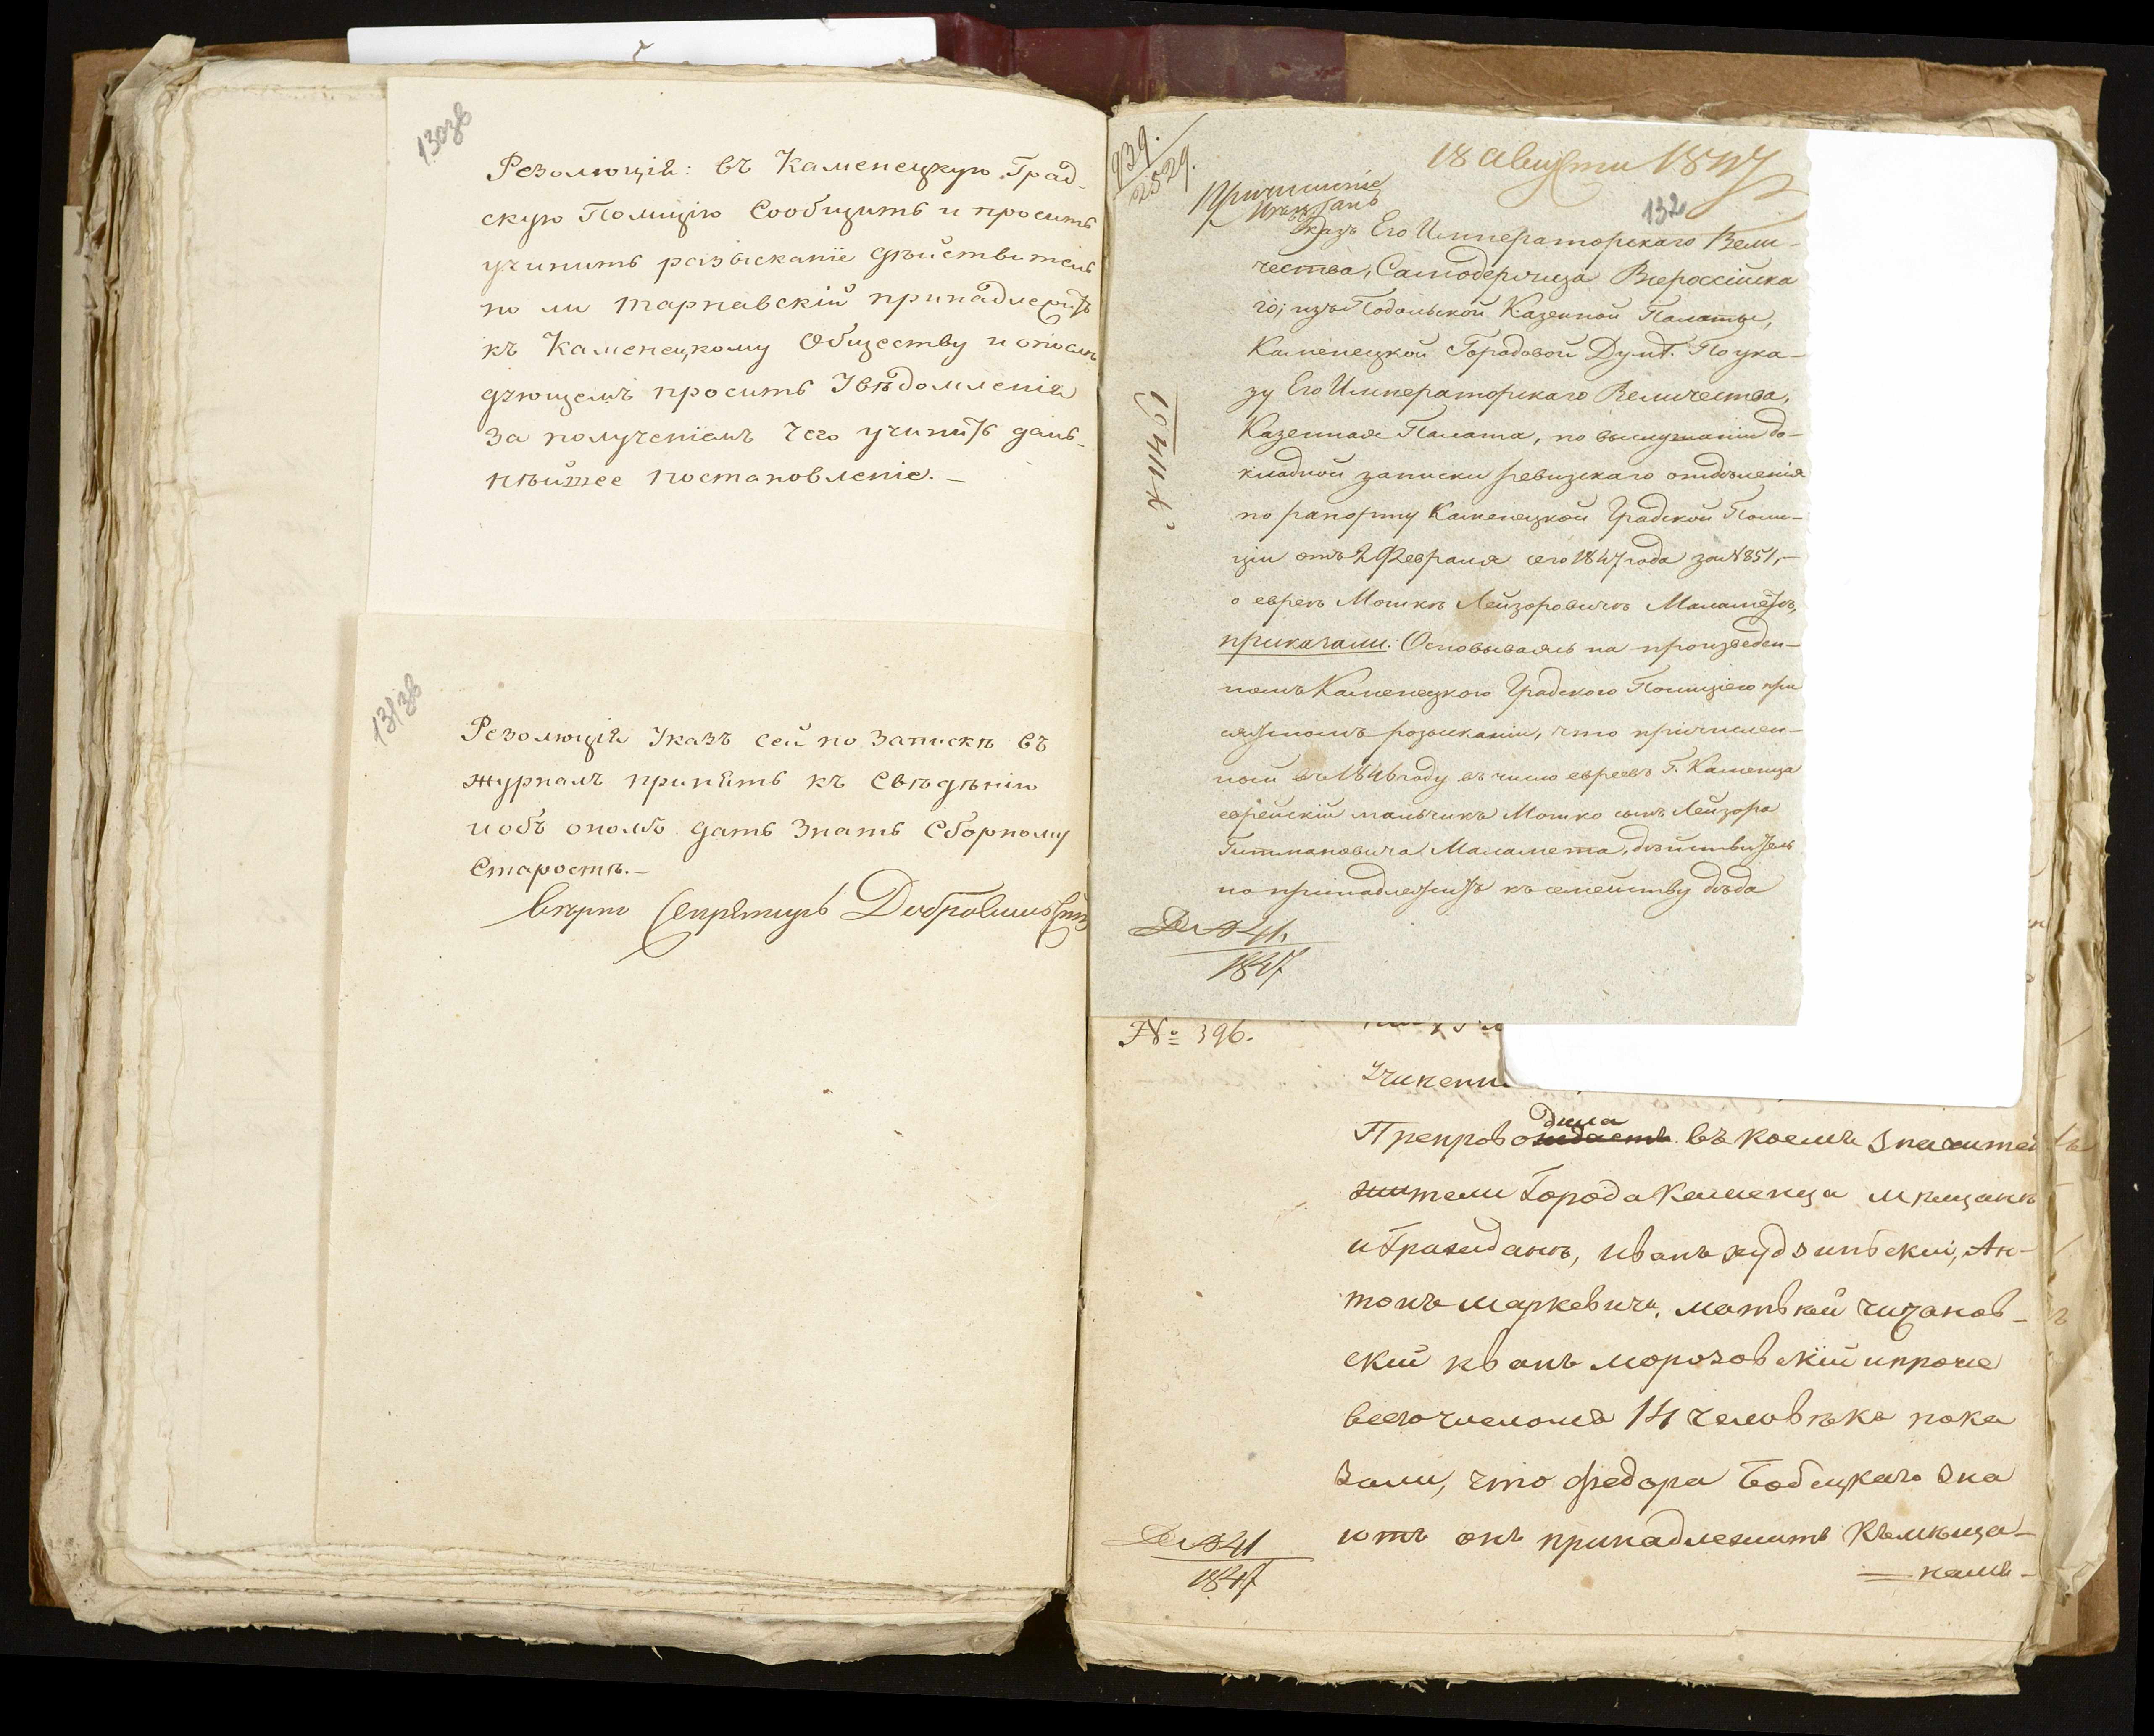 130зв
Резолюція: въ Каменецкую Град-
скую Полицію Сообщить и просить
учинить розысканіе дѣйствитель
но ли Тарнавскій принадлежитъ
къ Каменецкому Обществу и о послѣ
дующемъ просить Увѣдомленія
За полученіемъ чего учинить даль-
нѣйшее постановленіе.-
131зв
Резолюція Указъ сей по Запискѣ въ
журналъ принять къ Свѣдѣнію
и объ ономъ дать Знать Сборному
Старостѣ.-
Вѣрно Секретарь
939.
2529.
18 августа 1847
132
Указъ Его Императорскаго Вели-
чества, Самодержца Всероссійска
го; изъ Подольской Казенной Палаты,
Каменецкой Городовой Думѣ. По ука-
зу Его Императорскаго Величества,
Казенная Палата, по выслушаніи до-
кладной записки ревизскаго отдѣленія
по рапорту Каменецкой Градской Поли-
ціи отъ 2 Февраля сего 1847 года за № 851,-
о евреѣ Мошкѣ Лейзоровичѣ Маламетѣ,
приказали: Основываясь на произведен-
номъ Каменецкою Градскою Полиціею при
сяжномъ розысканіи, что причислен-
ный въ 1846 году въ число евреевъ Г. Каменца
еврейскій мальчикъ Мошко сынъ Лейзора
Гитмановича Маламета, дѣйствитель
но принадлежитъ къ семейству дѣда
Д. № 41.
1847
№ 396.
Учинени
дила
Препровождаетъ въ коемъ Значитъ
жители Города Каменца мѣщанѣ
и Гражданѣ, Иванъ Худзинский, Ан-
тонъ Маркевичъ, Матвѣй Чижанов-
ский Иванъ Морозовскій и проче
всего числомъ 14 человѣкъ пока
Зали, что Федора Бобецкаго Зна
ютъ онъ принадлежитъ къ мѣща-
намъ-
Д. № 41
1847